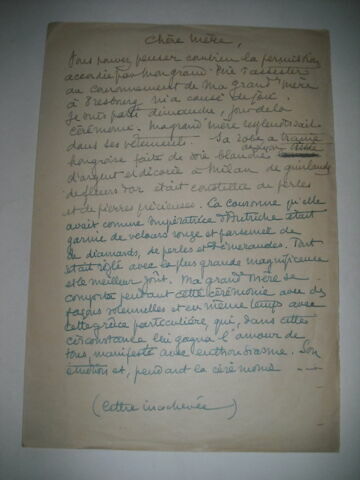 Chère Mère,
Vous pouvez penser combien la permission
accordée par mon grand-Père d'assister
au couronnement de ma grand'mère
à Presbourg m'a causé de joie.
Je suis parti dimanche, jour de la
cérémonie. ma grand'mère resplendissait
dans ses vêtements. Sa robe à traine
hongroise faite de soie blanche
d'argent et décorée à Milan de guirlandes
de fleurs d'or était constellée de perles
et de pierres précieuses. La couronne qu'elle
avait comme Impératrice d'Autriche était
garnie de velours rouge et parsemée de
de diamants, de perles et d'émeraudes. Tout
était réglé avec la plus grande magnificence
et le meilleur goût. Ma grand'Mère se
comporta pendant cette cérémonie avec des
façons solennelles et en même temps avec
cette grâce particulière qui, dans cette
circonstance lui gagna l'amour de
tous, manifesté avec enthousiasme. Son
émotion et, pendant la cérémonie ....
(lettre inachevée)